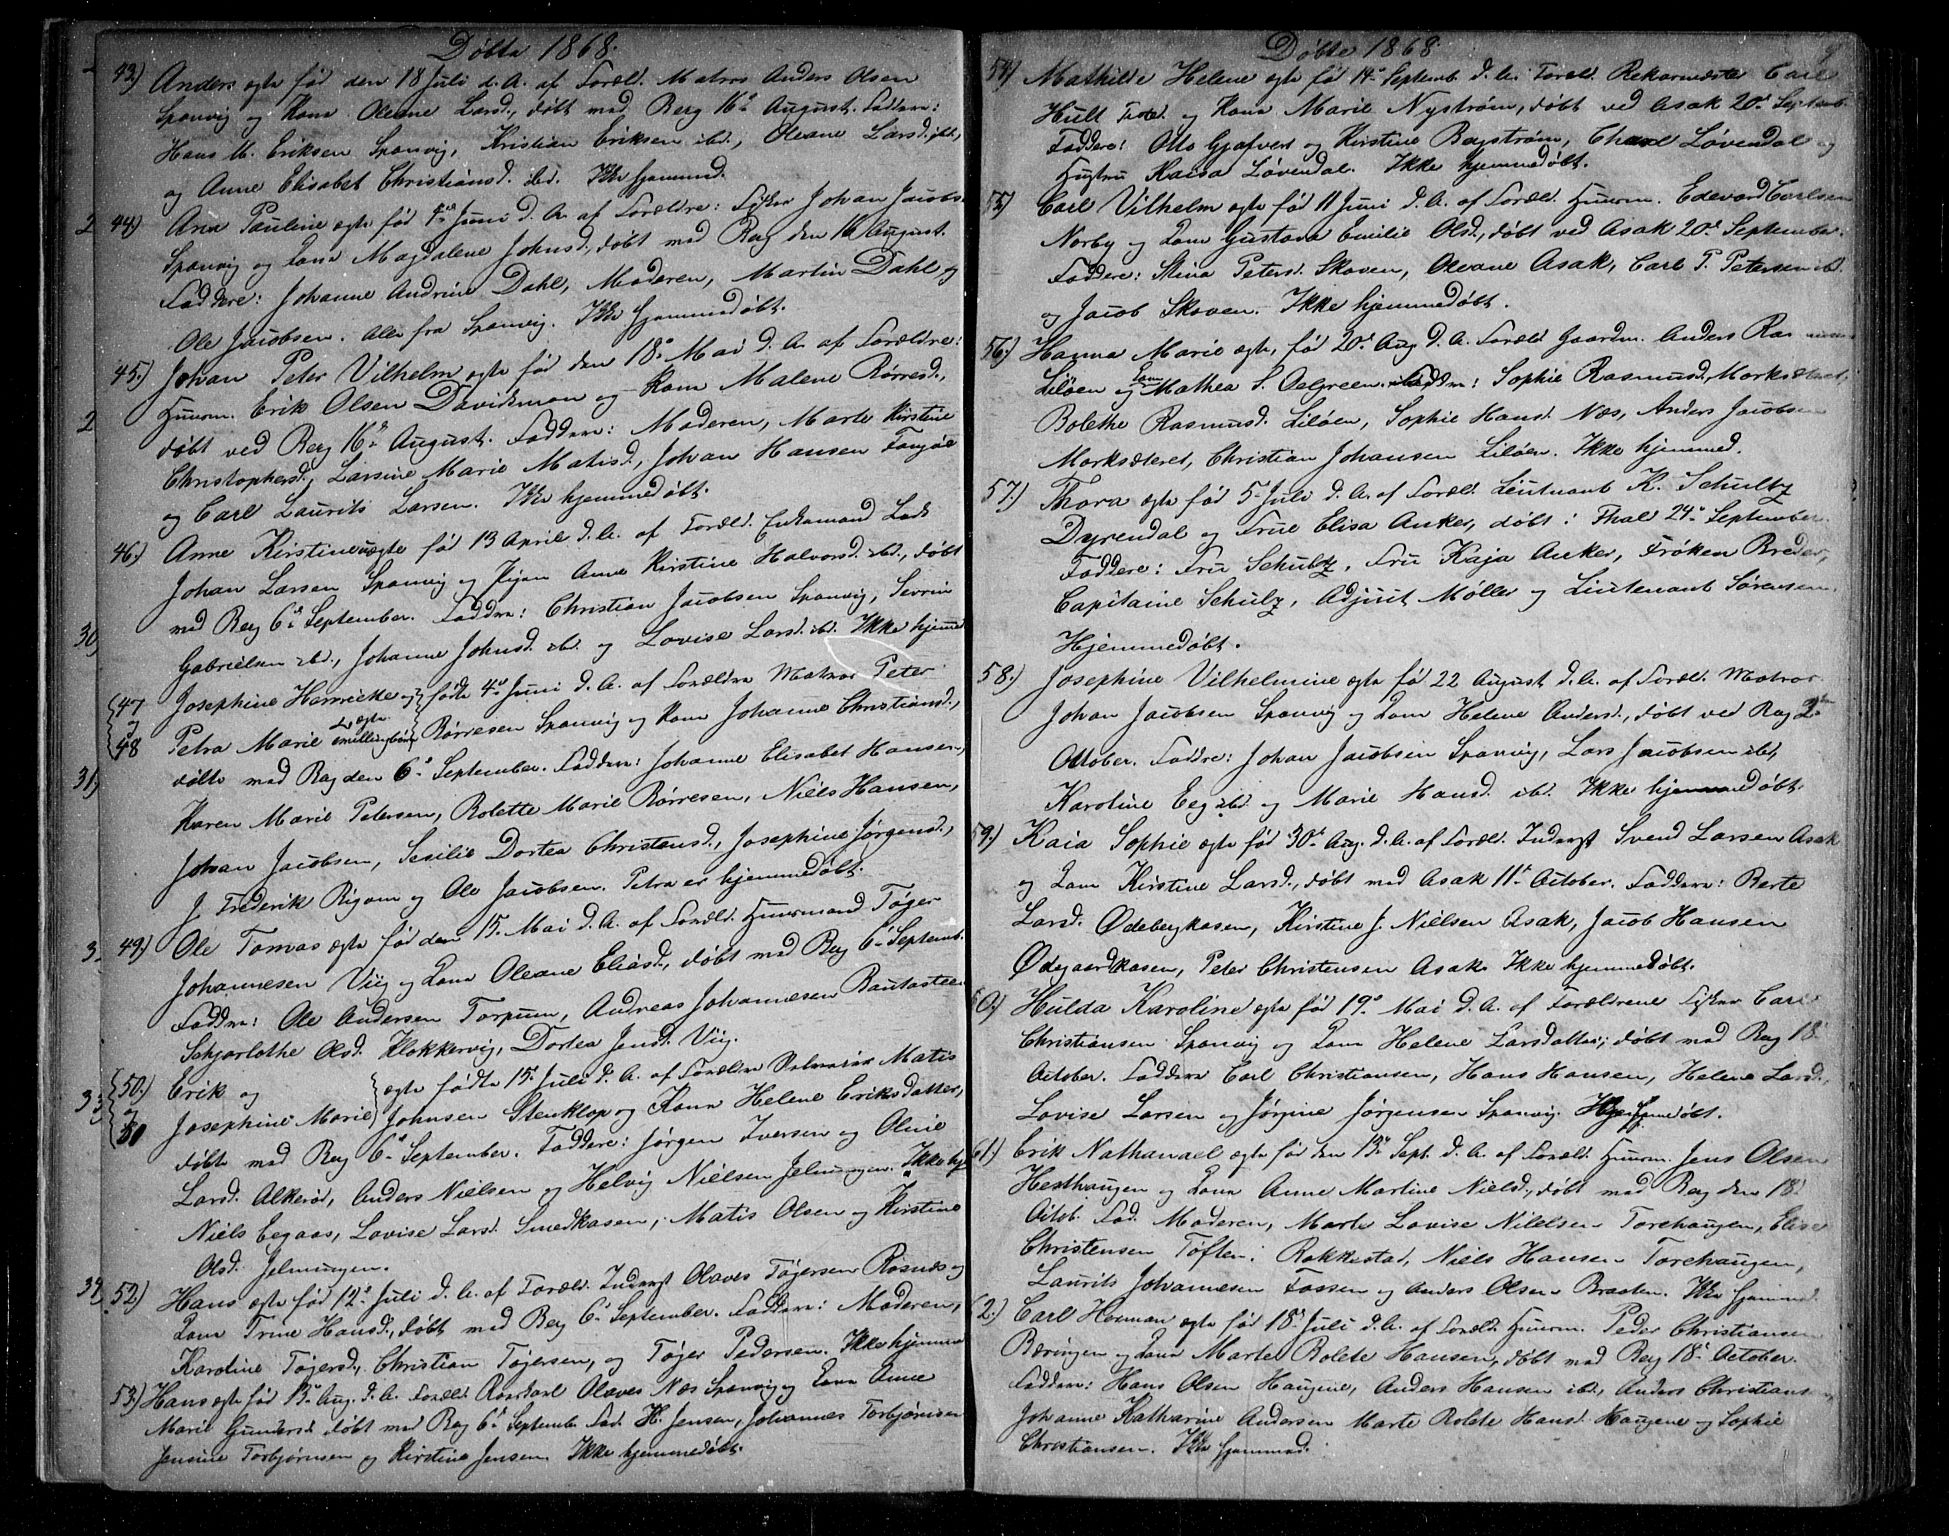 Døbte 1868.
43.) Anders ægte fød den 18 Juli d. A. af Foræld. Matros Anders Olsen
Sponvig og Kone Oleane Larsd., døbt med Berg 16de August. Faddere:
Hans M. Eriksen Sponvig, Kristian Eriksen ibd., Oleane Larsd. ibd,
og Anne Elisabet Christiansd. ibd. Ikke hjemmed.
44.) Ana Pauline ægte fød Juni d. A. af Forældre: Johan Jacobs
Sponvig og Kone Magdalene Johnsd., døbt med Berg den 16 August.
Faddere: Johanne Andrine Dahl, Moderen, Martin Dahl og
Ole Jacobsen. Alle fra Sponvig. Ikke hjemmedøbt.
45.) Johan Peter Vilhelm ægte fød den 18de Mai d. A. af Forældre:
Huusm. Erik Olsen Davidsmon og Kone Malene Børresd.,
døbt ved Berg 16de August. Faddere: Moderen, Marte Kirstine
Christophersd., Larsine Marie Matisd., Johan Hansen
og Carl Laurits Larsen. Ikke hjemmedøbt.
46.) Anne Kirstine uægte fød 13 April d. A. af Foræld. Enkemand Lods
Johan Larsen Sponvig og Pigen Anne Kirstine Halvorsd. ibd., døbt
med Berg 6te September. Faddere: Christian Jacobsen Sponvig, Sevrin
30, Gabrielsen ibd., Johanne Johnsd. ibd. og Lovise Larsd. ibd. Ikke hjemmed
47 Josephine Henriette og fødte 4de Juni d. A. af Forældre Matros Peter
og
48 Petra Marie ægte Tvillingbørn Børresen Sponvig og Kone Johanne Christiansd.,
31, døbte med Berg den 6te September. Faddere: Johanne Elisabet Hansen,
Karen Marie Petersen, Bolette Marie Børresen, Niels Hansen,
Johan Jacobsen, Sesilie Dortea Christensd., Josephine Jørgensd.,
J. Frederik og Ole Jacobsen. Petra er hjemmedøbt.
49.) Ole Tomas ægte fød den 15 Mai d. A. af Foræld. Huusmand Tøger
Johannesen Viig og Kone Oleane Eliasd., døbt med Berg 6te Septemb.
Faddere: Ole Andersen Torpum, Andreas Johannesen Bautasteen
Schjarlothe Olsd. Klokkervig, Dortea Jensd. Viig.
50.) Erik og ægte fødte 15 Juli d. A. af Forældre Matis
og
51 Josephine Marie Johnsen Stenklop og Kone Helene Eriksdatter,
døbte med Berg 6te September. Faddere: Jørgen Iversen og Oline
Larsd. Alkerød, Anders Nielsen og Helvig Nielsen Jelmungen. Ikke hj
Niels Eegaas, Lovise Larsd. Smedkasen, Matis Olsen og Kirstine
Olsd. Jelmungen.
52.) Hans ægte fød 12te Juli d. A. af Foræld. Inderst Olaves Tøgersen Rosnæs og
Kone Trine Hansd., døbt med Berg 6te September. Faddere: Moderen,
Karoline Tøgersd., Christian Tøgersen, og Tøger Pedersen. Ikke hjemme
53.) Hans ægte fød 13de Aug. d. A. Foræld. Olaves Næs Sponvig og Kone Anne
Marie Gundersd. døbt med Berg 6te September Fad. H. Jensen, Johannes Torbjørnsen
Jensine Torbjørnsen og Kirstine Jensen. Ikke hjemmedøbt.
Døbte 1868.
54.) Mathilde Helene ægte fød 14de Septemb. d. A. Foræld. Carl
Hult og Kone Marie Nystrøm, døbt ved Asak 20de Septemb.
Faddere: Otto Gjafvert og Kirstine Bagstrøm, Løvendal og
Hustru Kaisa Løvendal. Ikke hjemmedøbt.
55.) Carl Vilhelm ægte fød 11 Juni d. A. af Foræld. Huusm. Edevard Carlsen
Norby og Kone Gustava Emilie Olsd., døbt ved Asak 20de September.
Faddere: Stina Petersd. Skoven, Oleane Asak, Carl P. Petersen ibd.
og Jacob Skoven. Ikke hjemmedøbt.
56.) Hanna Marie ægte, fød 20de Aug. d. A. Foræld. Gaardm. Anders
Liløen og Kone Mathea S. Faddere: Sophie Rasmusd. Morksæteret,
Bolethe Rasmusd. Liløen, Sophie Hansd. Næs, Anders Jacobsen
Morksæteret, Christian Johansen Liløen. Ikke hjemmed.
57.) Thora ægte fød 5 Juli d. A. af Foræld. Lieutnant K. Schultz
Dyrendal og Frue Elisa Anker, døbt i Thal 24de September.
Faddere: Fru Schultz, Fru Kaja Anker, Frøken Breder,
Capitaine Schulz, Adjuct Møller og Lieutenant Sørensen.
Hjemmedøbt.
58.) Josephine Vilhelmine ægte fød 22 August d. A. af Foræld. Matros
Johan Jacobsen Sponvig og Kone Helene Andersd., døbt ved Berg
Oktober. Faddre: Johan Jacobsen Sponvig, Lars Jacobsen ibd,
Karoline Eeg ibd. og Marie Hansd. ibd. Ikke hjemmedøbt.
59.) Kaia Sophie ægte fød 30te Aug. d. A. af Foræld. Inderst Svend Larsen Asak
og Kone Kirstine Larsd., døbt med Asak 11te October. Faddere: Berte
Larsd. Ødebergkasen, Kirstine J. Nielsen Asak, Jacob Hansen
Ødegaardkasen, Peter Christensen Asak. Ikke hjemmedøbt.
60.) Hulda Karoline ægte fød 19de Mai d. A. af Forældrene Carl
Christiansen Sponvig og Kone Helene Larsdatter, døbt med Berg 18
October. Faddere Carl Christiansen, Hans Hansen, Helene Larsd.,
Lovise Larsen og Jørgine Jørgensen Sponvig. hjemmedøbt.
61.) Erik Nathanael ægte fød den 13de Sept. d. A. af Foræld. Huusm. Jens Olsen
Hesthaugen og Kone Anne Martine Nielsd., døbt med Berg den 18de
Octob. Fad. Moderen, Marte Lovise Nilelsen Torehaugen, Elise
Christensen Tøften i Rakkestad, Niels Hansen Torehaugen,
Laurits Johannesen Fossen og Anders Olsen Braaten. Ikke hjemmed.
62.) Carl Herman ægte fød 18de Juli d. A. af Foræld. Huusm. Peder Christiansen
Bæringen og Kone Marte Bolete Hansen, døbt med Berg 18de October.
Faddere: Hans Olsen Haugene, Anders Hansen ibd., Anders Christians
Johanne Katharine Andersen Marte Bolete Hansd. Haugene og Sophie
Christiansen. Ikke hjemmed.